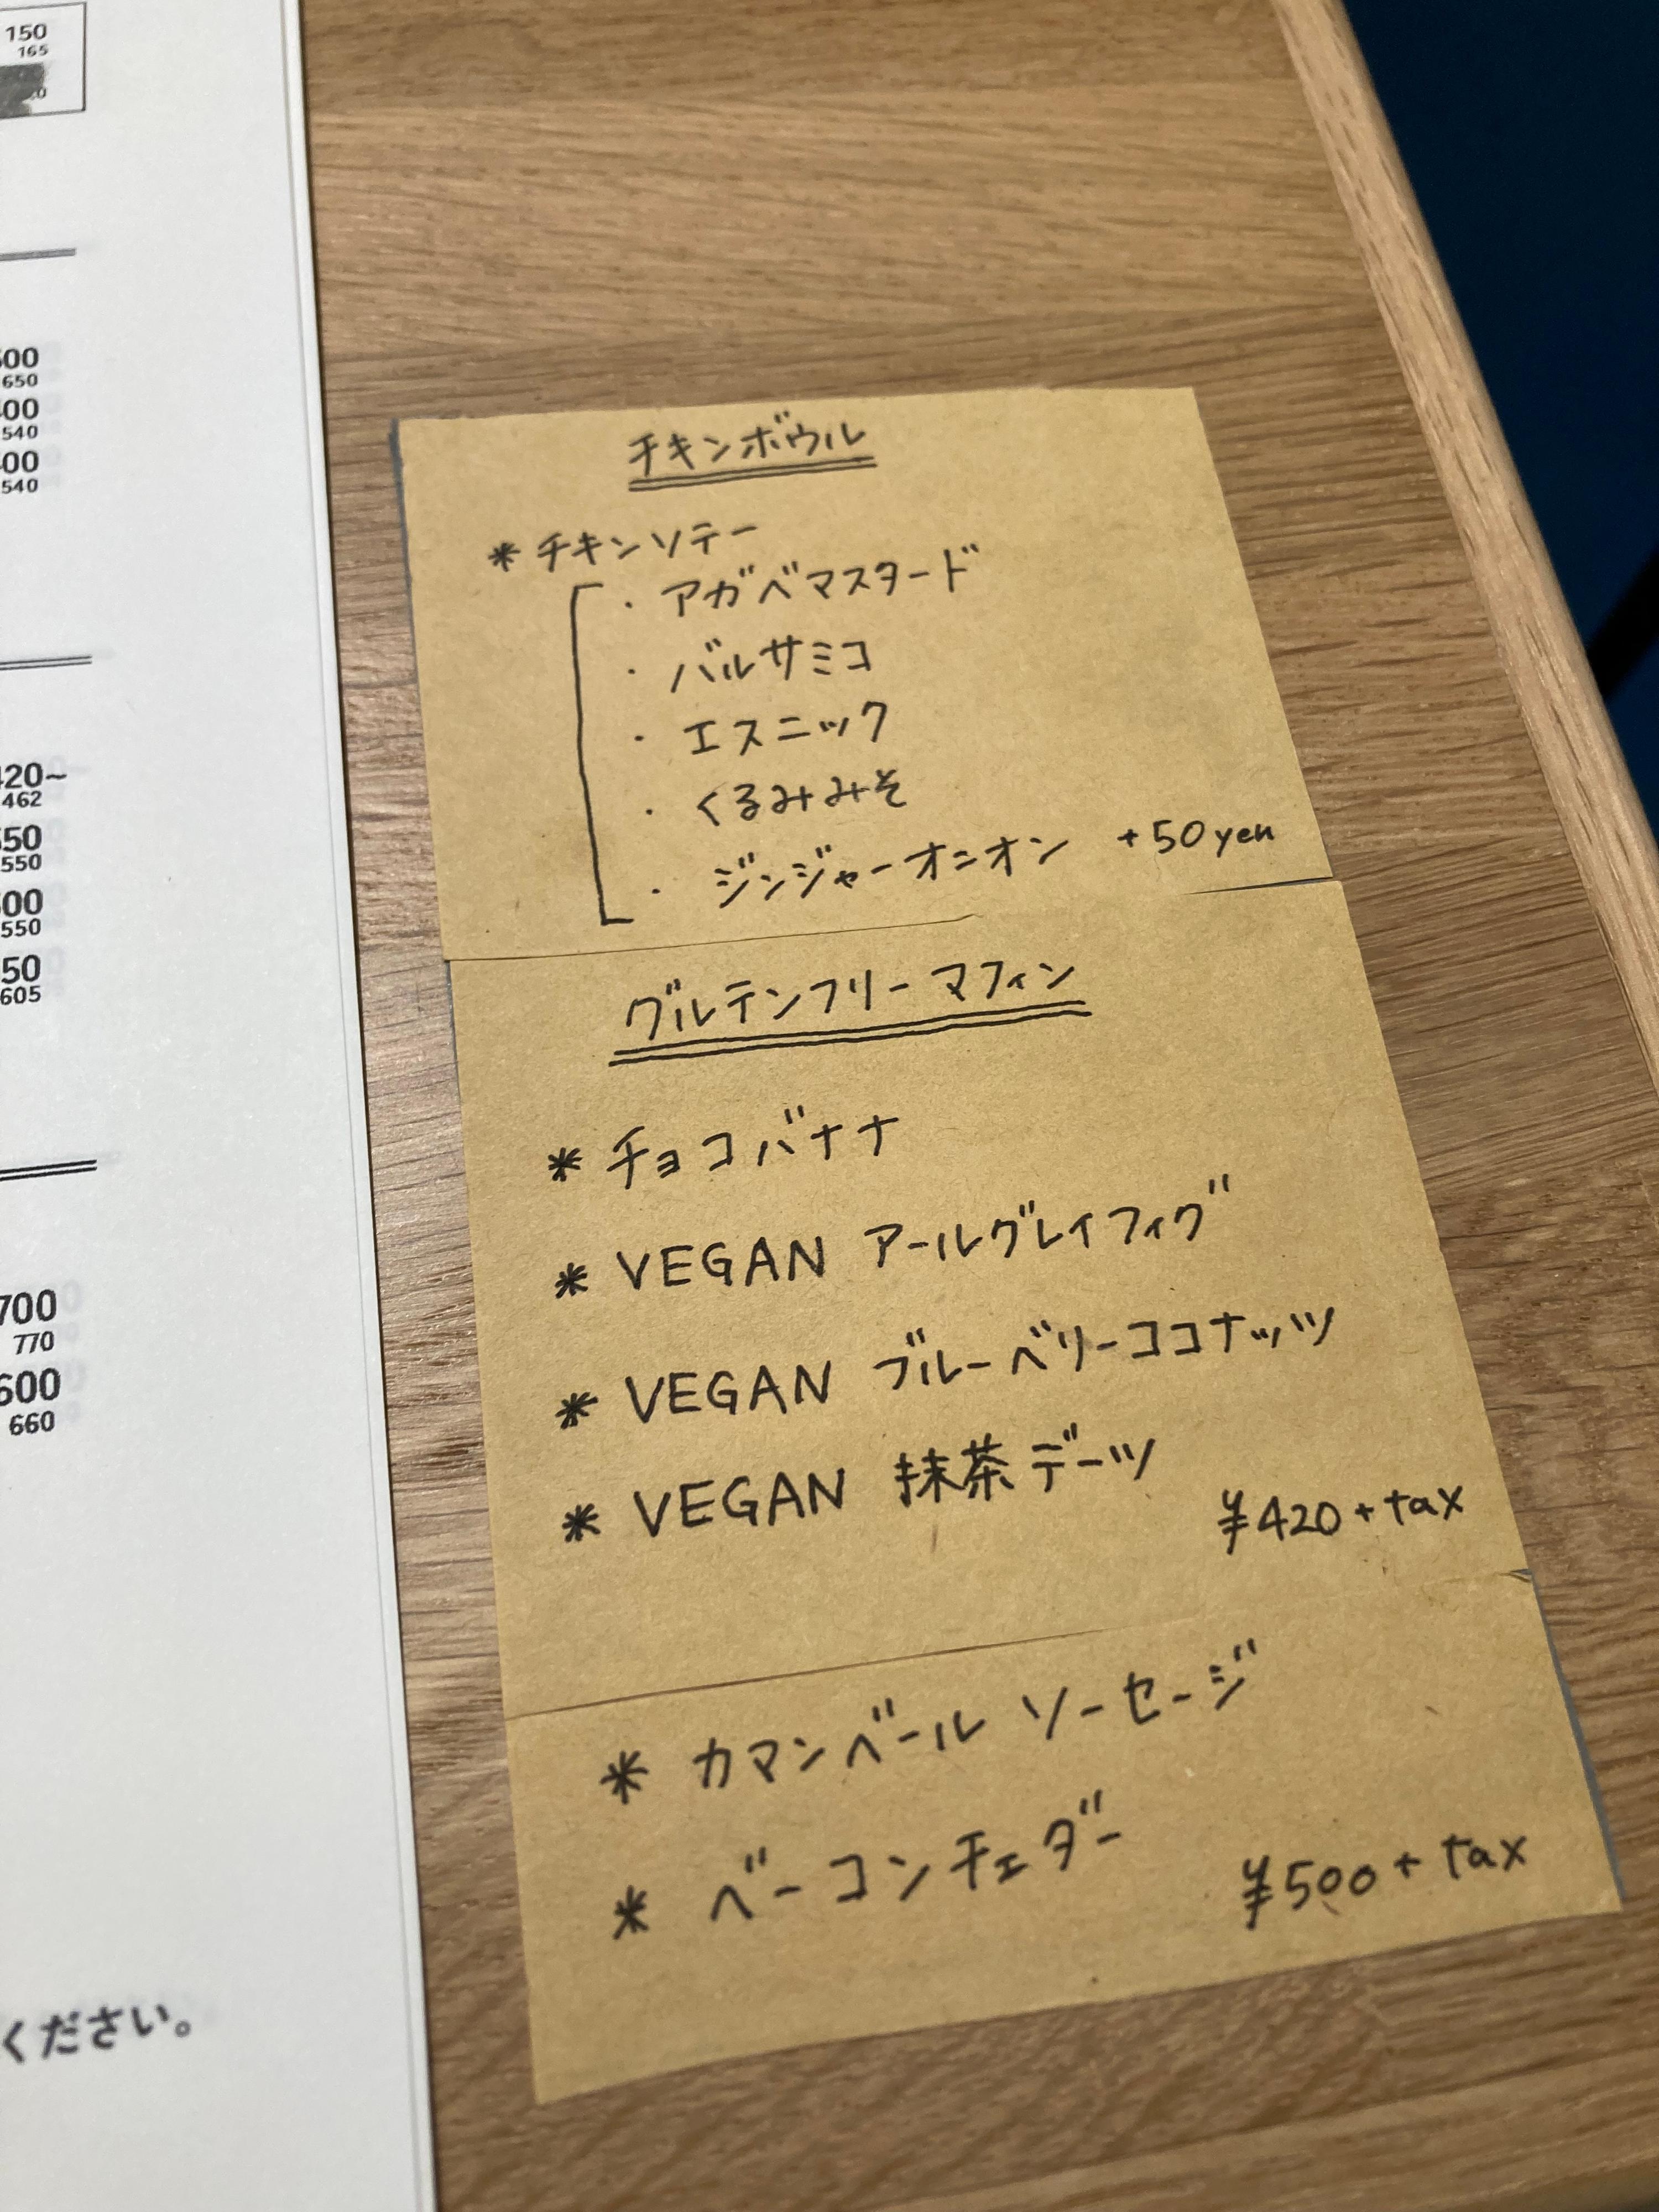 150
165
650
540
540
420~
462
550
550
605
700
770
600
660
ください。
チキンボウル
* チキンソテー
・アガベマスタード
・バルサミコ
・エスニック
・くるみみそ
・ジンジャーオニオン +50yen
グルテンフリーマフィン
* チョコバナナ
* VEGAN アールグレイフィグ
* VEGAN ブルーベリーココナッツ
* VEGAN 抹茶デーツ
¥420+tax
* カマンベール ソーセージ
* ベーコンチェダー
¥500+tax